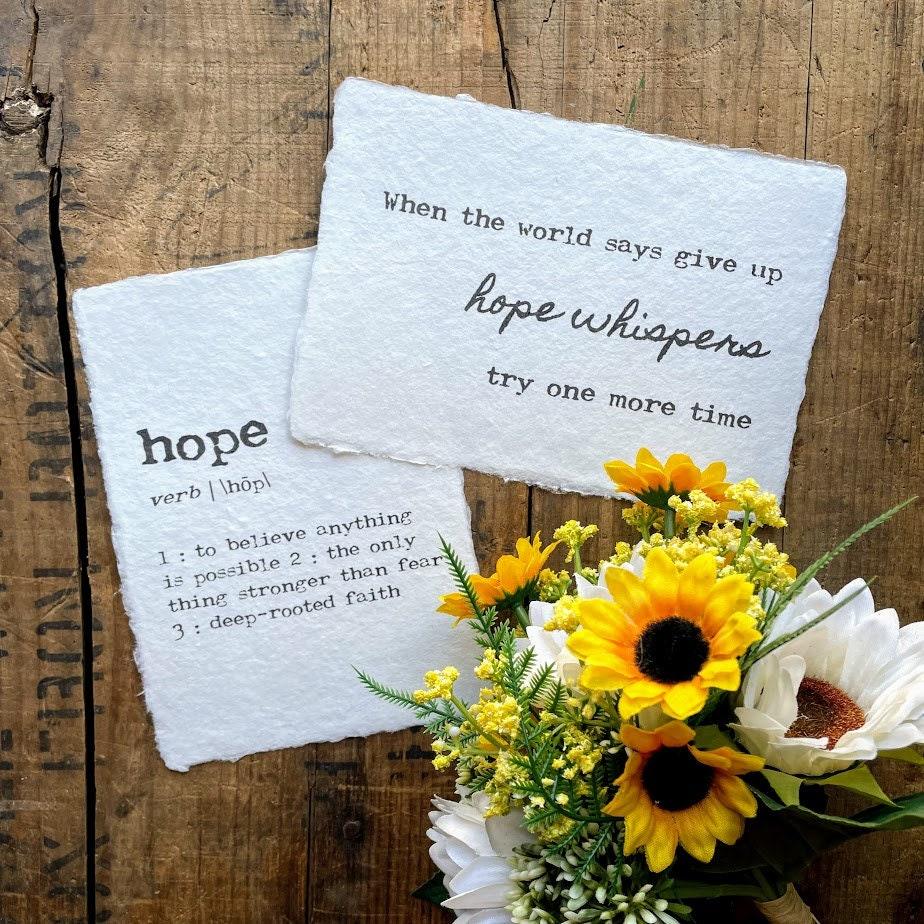 When the world says give up
hope whispers
try one more time
hope
verb | \hōp\
1 : to believe anything
is possible 2 : the only
thing stronger than fear
3 : deep-rooted faith